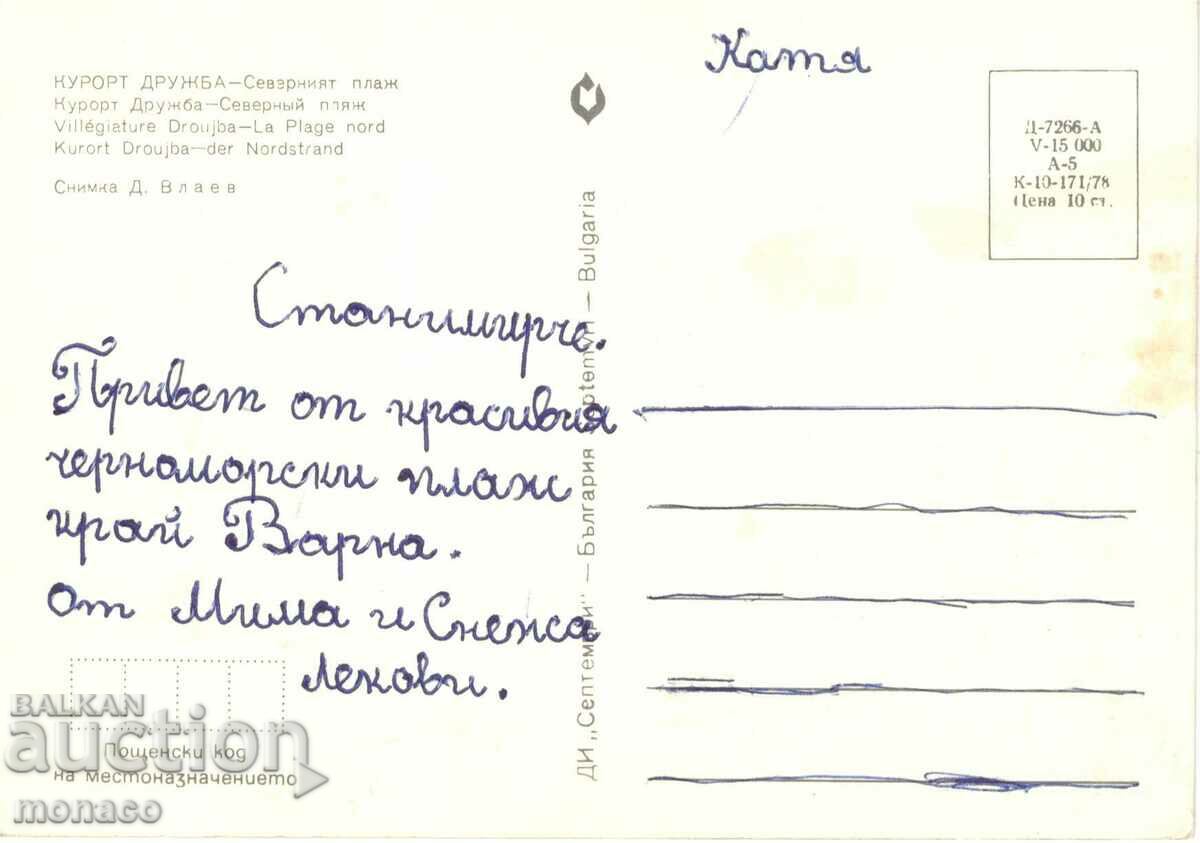 КУРОРТ ДРУЖБА—Северният плаж
Курорт Дружба—Северный пляж
Villégiature Droujba—La Plage nord
Kurort Droujba—der Nordstrand
Снимка Д. Влаев
Катя
Д-7266-А
V-15 000
А-5
К-10-171/78
Цена 10 ст.
Станимирче.
Привет от красивия
черноморски плаж
край Варна.
от Мима и Снежа
Лекови.
ДИ „Септември" — България Septemvri — Bulgaria
Пощенски код
на местоназначението
BALKAN
auction
monaco